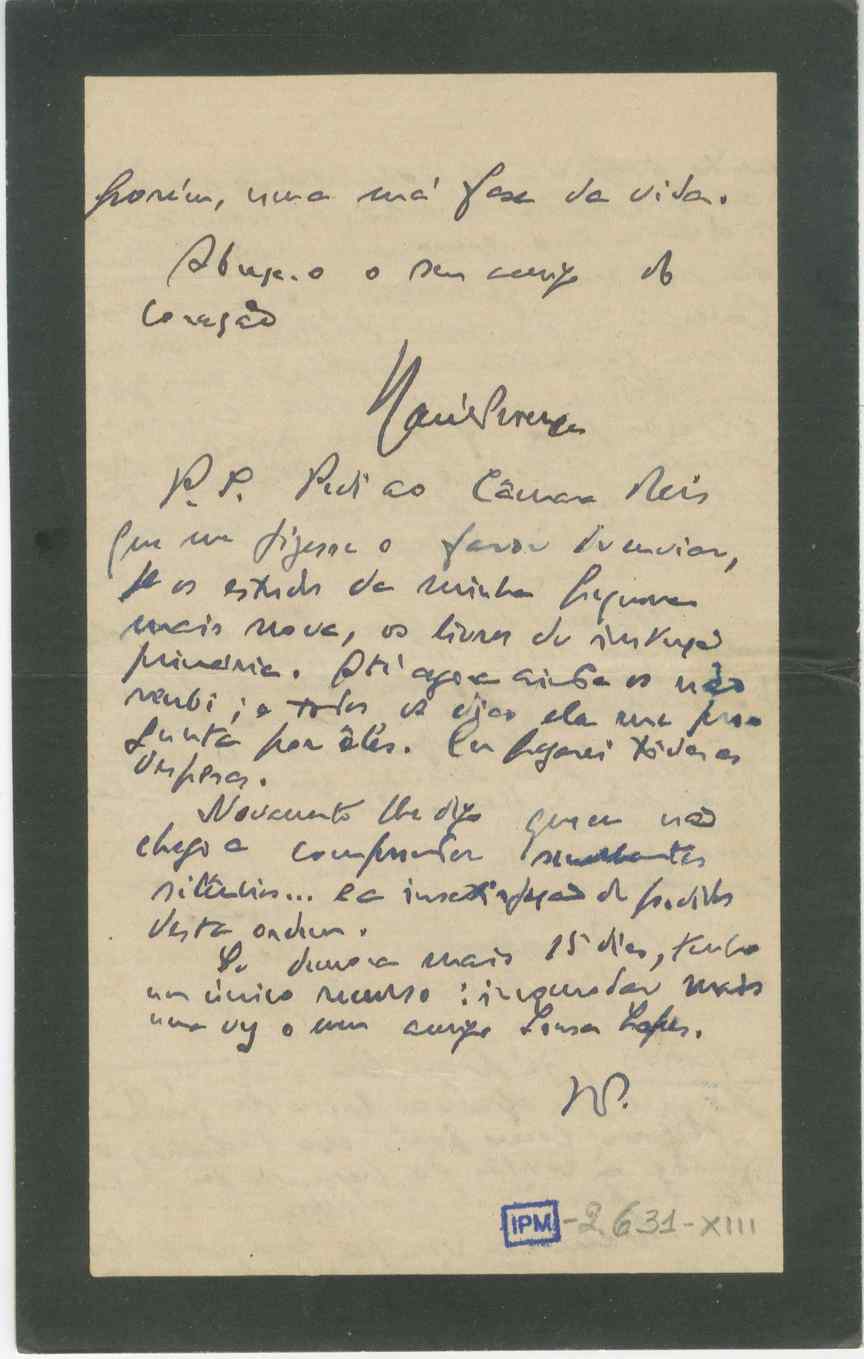 porém, uma má fase da vida.
Abraça-o o seu amigo do
coração
P.S. Pedi ao Câmara Reis
que me fizesse o favor de enviar,
p os estudos da minha pequena
mais nova, os livros de instrução
primária. Até agora ainda os não
recebi; e todos os dias ela me per
gunta por êles. Eu pagarei tôdas as
despesas.
Novamente lhe digo que eu não
chego a compreender semelhantes
silêncios... e a insatisfação de pedidos
desta ordem.
Se demora mais 15 dias, tenho
um único recurso: incomodar mais
uma vez o meu amigo Sousa Lopes.
IPM-2631-XIII